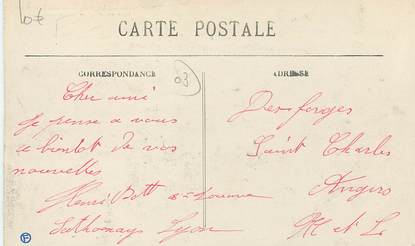 10€
CARTE POSTALE
CORRESPONDANCE
ADRESSE
03
Cher ami
Je pense a vous
a bientot de vos
nouvelles
Henri
Sathonay Lyon
Desforges
Saint Charles
Angers
M et L